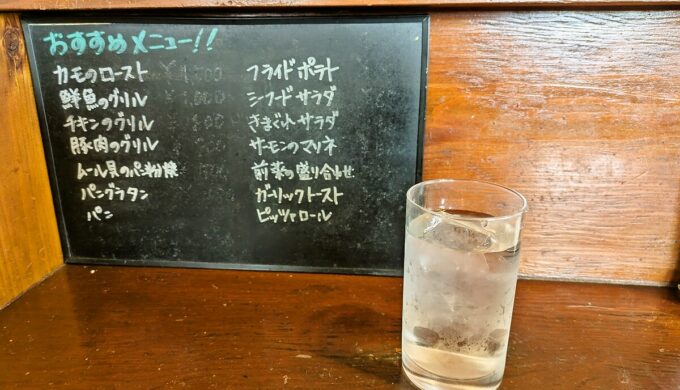 おすすめメニュー!!
カモのロースト
鮮魚のグリル
チキンのグリル
豚肉のグリル
ムール貝のパン粉焼
パングラタン
パン
フライドポテト
シーフードサラダ
きまぐれサラダ
サーモンのマリネ
前菜の盛り合わせ
ガーリックトースト
ピッツァロール